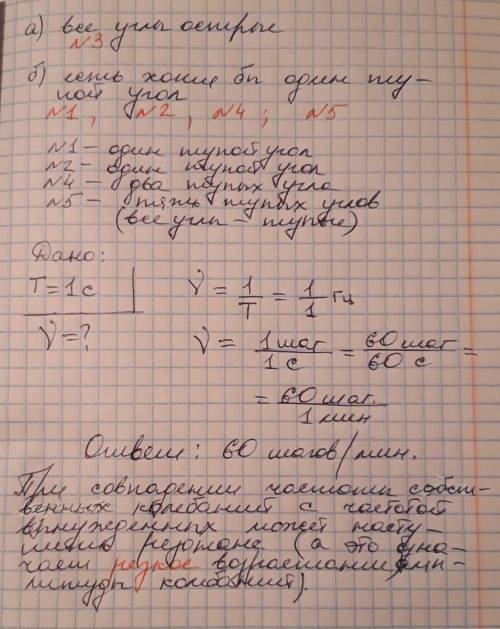 а) все углы острые
№3
б) есть хотя бы один ту-
пой угол
№1, №2, №4; №5
№1 – один тупой угол
№2 – один тупой угол
№4 – два тупых угла
№5 – пять тупых углов
(все углы – тупые)
Дано:
T = 1 с
ν = ?
ν = 1/T = 1/1 Гц
ν = 1 шаг/1 с = 60 шаг/60 с =
= 60 шаг./1 мин
Ответ: 60 шагов/мин.
При совпадении частоты собст-
венных колебаний с частотой
вынужденных может насту-
пить резонанс (а это озна-
чает резкое возрастание ам-
плитуды колебаний).